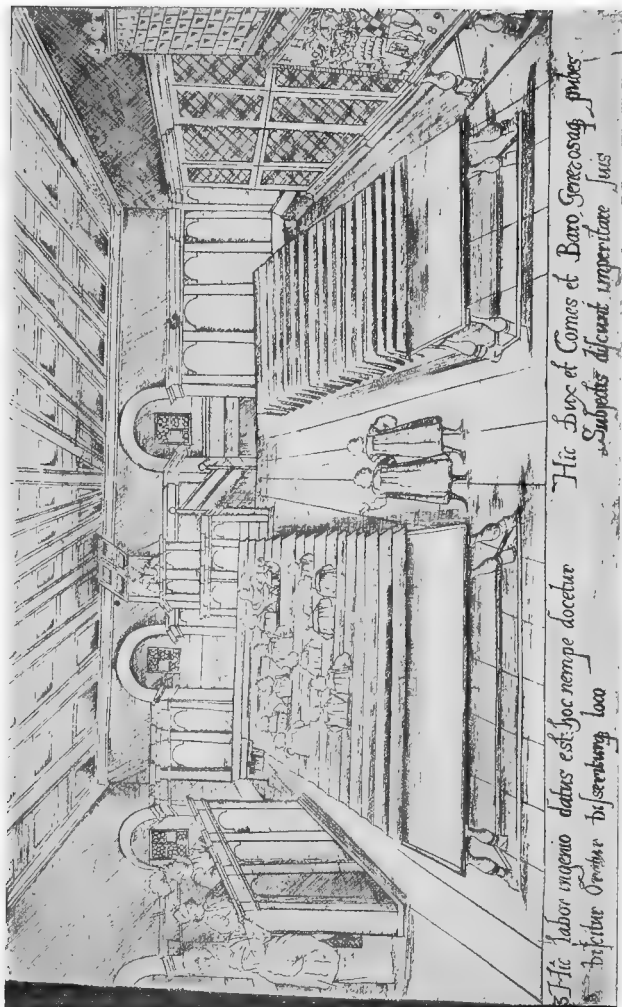 Hic labor ingenio datus est: hoc nempe docetur
Discitur Oratur loco
Hic Dux et Comes et Baro Generosaq pubes
Subjectis discunt imperitare suis
89